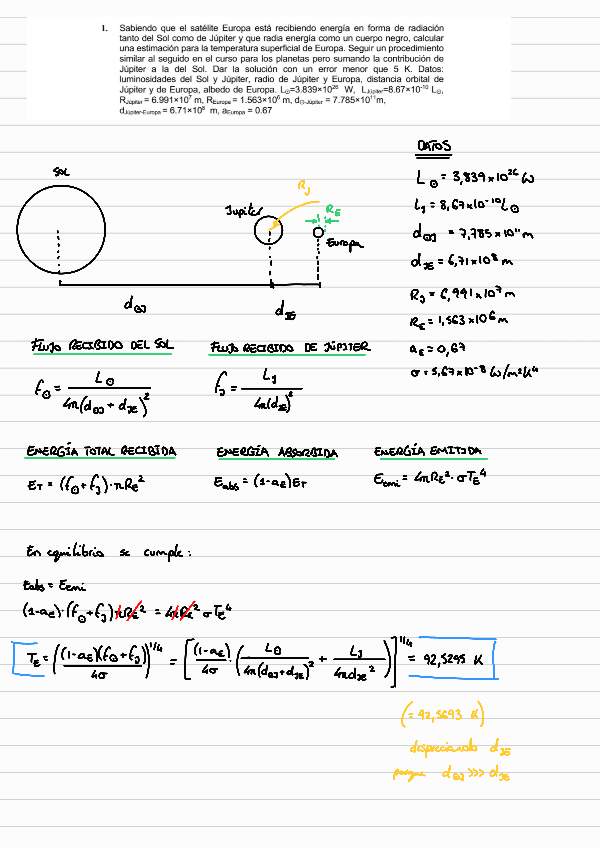 1. Sabiendo que el satélite Europa está recibiendo energía en forma de radiación
tanto del Sol como de Júpiter y que radia energía como un cuerpo negro, calcular
una estimación para la temperatura superficial de Europa. Seguir un procedimiento
similar al seguido en el curso para los planetas pero sumando la contribución de
Júpiter a la del Sol. Dar la solución con un error menor que 5 K. Datos:
luminosidades del Sol y Júpiter, radio de Júpiter y Europa, distancia orbital de
Júpiter y de Europa, albedo de Europa. L⊙=3.839×10²⁶ W, LJúpiter=8.67×10⁻¹⁰ L⊙,
RJúpiter = 6.991×10⁷ m, REuropa = 1.563×10⁶ m, d⊙-Júpiter = 7.785×10¹¹m,
dJúpiter-Europa = 6.71×10⁸ m, aEuropa = 0.67
DATOS
L⊙ = 3,839×10²⁶ W
LJ = 8,67×10⁻¹⁰ L⊙
d⊙J = 7,785×10¹¹ m
dJE = 6,71×10⁸ m
RJ = 6,991×10⁷ m
RE = 1,563×10⁶ m
aE = 0,67
σ = 5,67×10⁻⁸ W/m²K⁴
SOL
RJ
Jupiter
RE
Europa
d⊙J
dJE
FLUJO RECIBIDO DEL SOL
FLUJO RECIBIDO DE JÚPITER
f⊙ = L⊙ / 4π(d⊙J + dJE)²
fJ = LJ / 4π(dJE)²
ENERGÍA TOTAL RECIBIDA
ENERGÍA ABSORBIDA
ENERGÍA EMITIDA
ET = (f⊙ + fJ)·πRE²
Eabs = (1-aE)ET
Eemi = 4πRE²·σTE⁴
En equilibrio se cumple:
Eabs = Eemi
(1-aE)·(f⊙ + fJ)πRE² = 4πRE² σTE⁴
TE = ((1-aE)(f⊙ + fJ) / 4σ)^1/4 = [(1-aE) / 4σ · (L⊙ / 4π(d⊙J + dJE)² + LJ / 4πdJE²)]^1/4 = 92,5295 K
(= 92,5693 K)
despreciando dJE
porque d⊙J >>> dJE